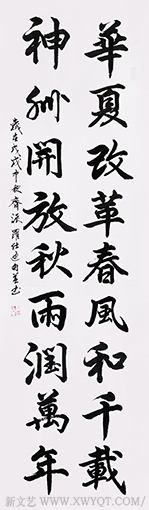 華夏改革春風和千載
神州開放秋雨潤萬年
歲在戊戌中秋齊派羅仕迪句并書
新文艺 WWW.XWYQT.COM